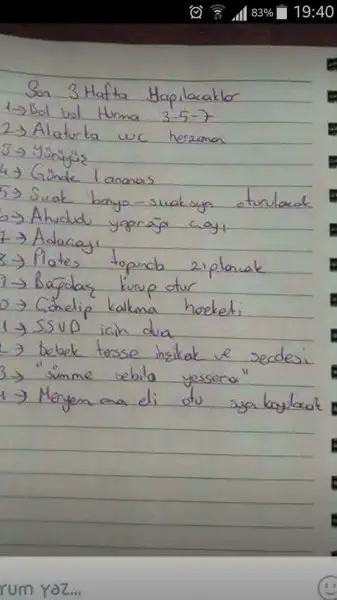 83% 19:40
Son 3 Hafta Yapılacaklar
1→ Bol bol Hurma 3-5-7
2→ Alaturka wc herzaman
3→ Yürüyüş
4→ Günde 1 ananas
5→ Sıcak banyo - sıcak suya oturulacak
6→ Ahududu yaprağı çayı
7→ Adaçayı
8→ Plates topunda zıplamak
9→ Bağdaş kurup otur
0→ Çömelip kalkma hareketi
1→ SSVD için dua
2→ bebek tersse inşikak ve secdesi
3→ "sümme sebila yessera"
4→ Meryem ana eli otu suya koyulacak
rum yaz...